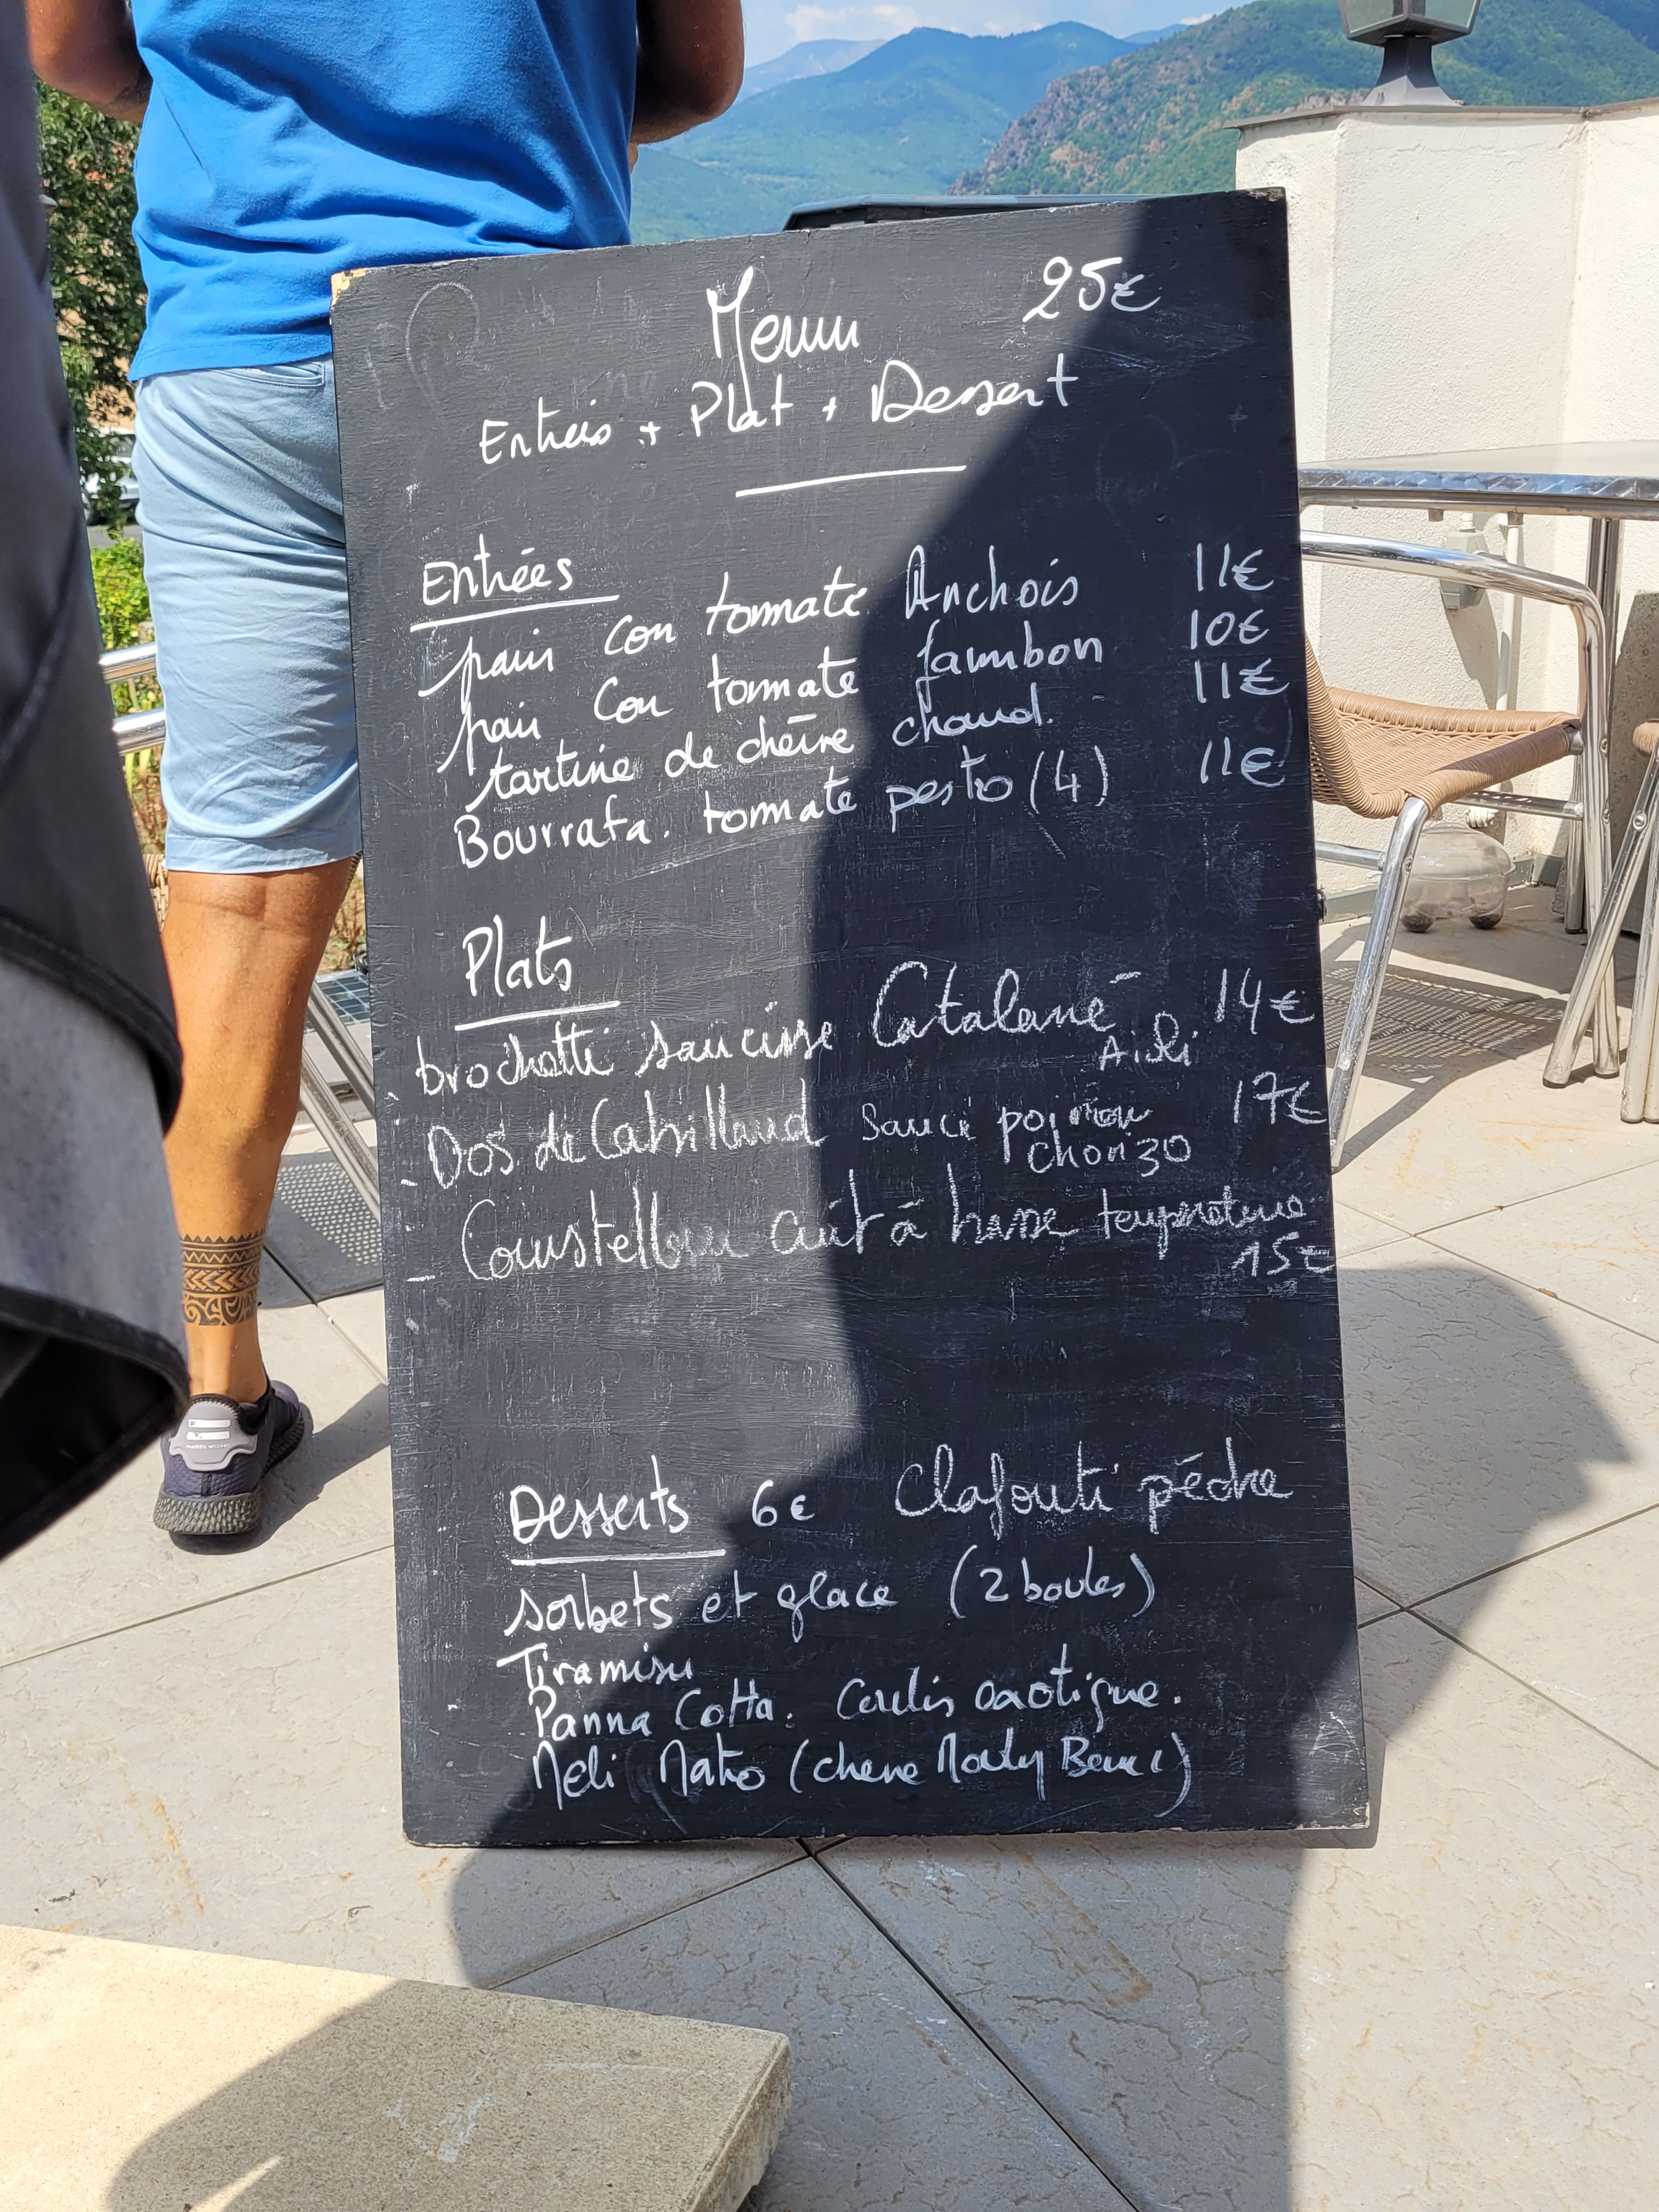 Menu 25€
Entrées + Plat + Dessert
Entrées
pain con tomate Anchois 11€
pain con tomate Jambon 10€
tartine de chèvre chaud. 11€
Bourrata. tomate pesto (4) 11€
Plats
brochette saucisse Catalane 14€
Aioli
- Dos de Cabillaud sauce poivron 17€
chorizo
- cuit à basse température
15€
Desserts 6€ Clafouti pêche
sorbets et glace (2 boules)
Tiramisu
Panna Cotta. Coulis exotique.
Meli Mato